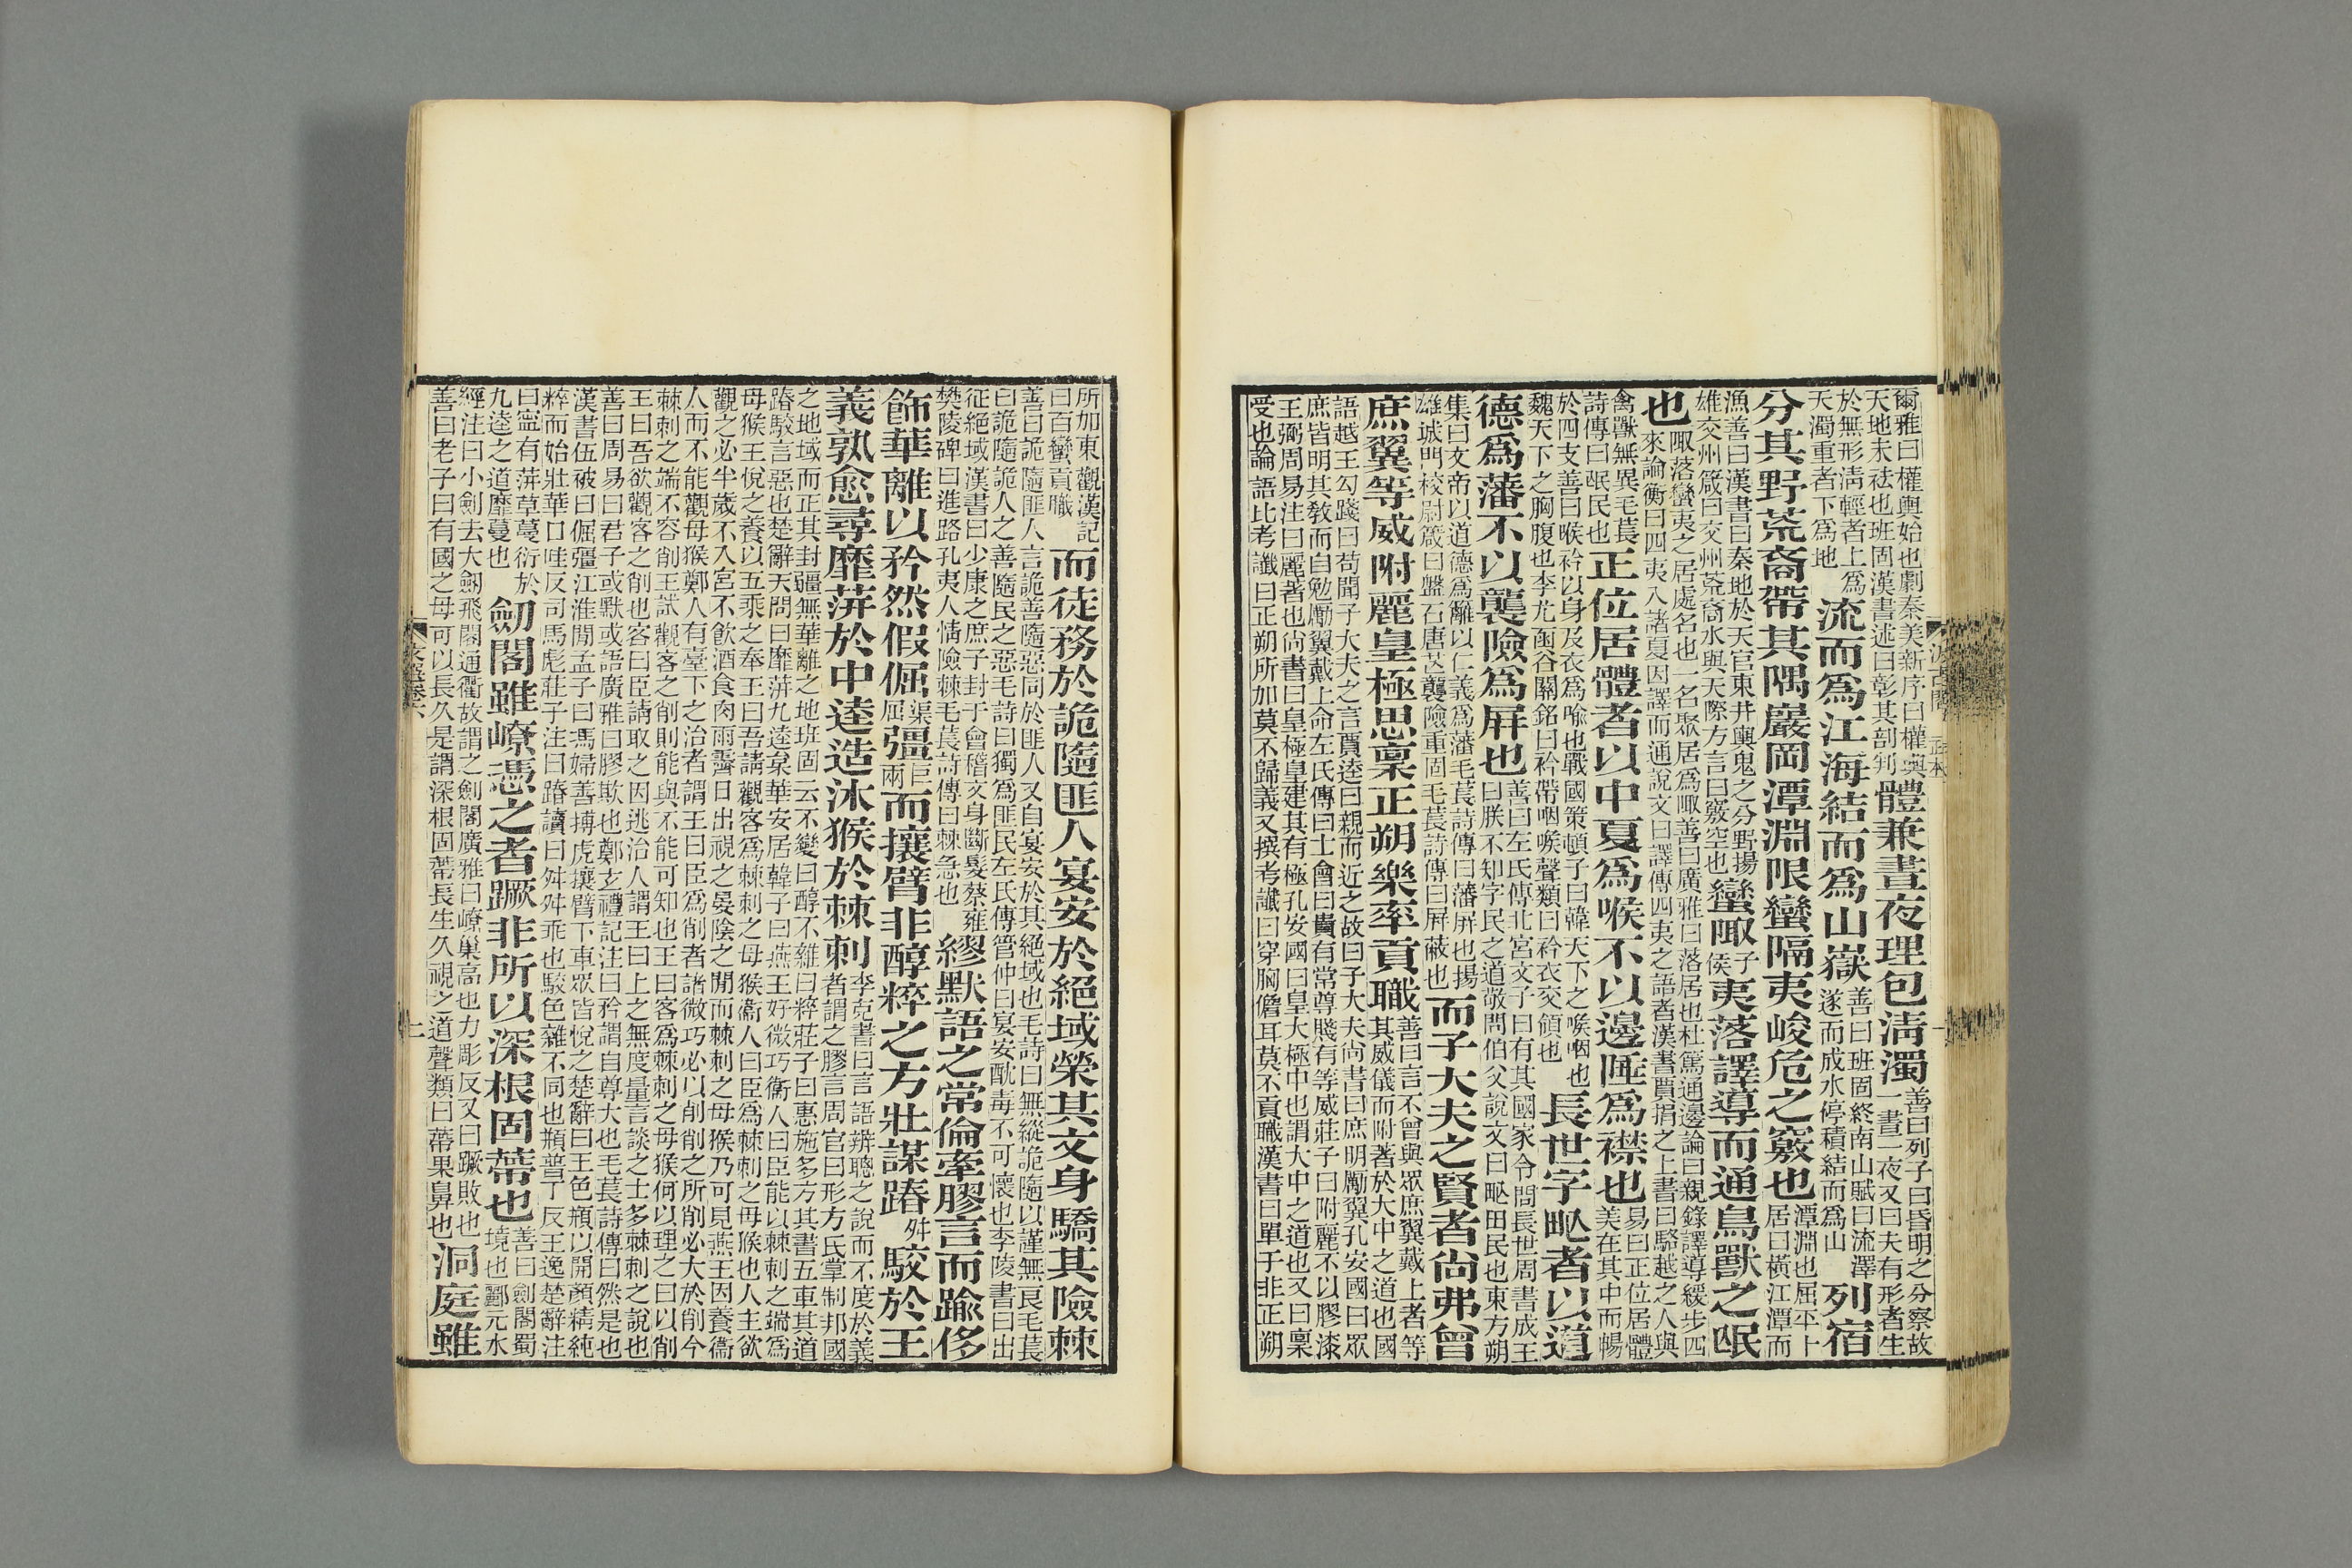 爾雅曰權輿始也劇秦美新序曰權輿天地未祛也班固漢書述曰彰其剖判體兼晝夜理包清濁善曰列子曰昏明之分察故一晝一夜又曰夫有形者生
於無形清輕者上爲天濁重者下爲地流而爲江海結而爲山嶽善曰班固終南山賦曰流澤遂而成水停積結而爲山列宿
分其野荒裔帶其隅巖岡潭淵限蠻隔夷峻危之竅也潭淵也屈平卜居曰橫江潭而
漁善曰漢書曰秦地於天官東井輿鬼之分野揚雄交州箴曰交州荒裔水與天際方言曰竅空也蠻陬子侯夷落譯導而通鳥獸之氓
也陬落蠻夷之居處名也一名聚居爲陬善曰廣雅曰落居也杜篤通邊論曰親錄譯導緩步四來論衡曰四夷入諸夏因譯而通說文曰譯傳四夷之語者漢書賈捐之上書曰駱越之人與
禽獸無異毛萇詩傳曰氓民也正位居體者以中夏爲喉不以邊陲爲襟也易曰正位居體美在其中而暢
於四支善曰喉衿以身及衣爲喻也戰國策頓子曰韓天下之喉咽也魏天下之胸腹也李尤函谷關銘曰衿帶咽喉聲類曰衿衣交領也長世字甿者以道
德爲藩不以襲險爲屏也善曰左氏傳北宮文子曰有其國家令問長世周書成王曰朕不知字民之道敬問伯父說文曰甿田民也東方朔
集曰文帝以道德爲麗以仁義爲藩毛萇詩傳曰藩屏也揚雄城門校尉箴曰盤石唐芒襲險重固毛萇詩傳曰屏蔽也而子大夫之賢者尚弗曾
庶翼等威附麗皇極思稟正朔樂率貢職善曰言不曾與眾庶翼戴上者等其威儀而附著於大中之道也國
語越王勾踐曰苟聞子大夫之言賈逵曰親而近之故曰子大夫尚書曰庶明勵翼孔安國曰眾庶皆明其敎而自勉勵翼戴上命左氏傳曰士會曰貴有常尊賤有等威莊子曰附麗不以膠漆
王弼周易注曰麗著也尚書曰皇極皇建其有極孔安國曰皇大極中也謂大中之道也又曰稟受也論語比考讖曰正朔所加莫不歸義又撰考讖曰穿胸儋耳莫不貢職漢書曰單于非正朔
所加東觀漢記曰百蠻貢職而徒務於詭隨匪人宴安於絕域榮其文身驕其險棘
善曰詭隨匪人言詭善隨惡同於匪人又自宴安於其絕域也毛詩曰無縱詭隨以謹無良毛萇曰詭隨詭人之善隨民之惡毛詩曰獨爲匪民左氏傳管仲曰宴安酖毒不可懷也李陵書曰出
征絕域漢書曰少康之庶子封于會稽文身斷髮蔡雍樊陵碑曰進路孔夷人情險棘毛萇詩傳曰棘急也繆默語之常倫牽膠言而踰侈
飾華離以矜然假倔渠屈彊巨兩而攘臂非醇粹之方壯謀踳舛駮於王
義孰愈尋靡蓱於中逵造沐猴於棘刺李克書曰言語辨聰之說而不度於義者謂之膠言周官曰形方氏掌制邦國
之地域而正其封疆無華離之地班固云不變曰醇不雜曰粹莊子曰惠施多方其書五車其道踳駮言惡也楚辭天問曰靡蓱九逵枲華安居韓子曰燕王好微巧衞人曰臣能以棘刺之端爲
母猴王悅之養以五乘之奉王曰吾請觀客爲棘刺之母猴衞人曰臣爲棘刺之母猴也人主欲觀之必半歲不入宮不飲酒食肉雨霽日出視之晏陰之閒而棘刺之母猴乃可見燕王因養衞
人而不能觀母猴鄭人有臺下之冶者謂王曰臣爲削者諸微巧必以削削之所削必大於削今棘刺之端不容削王試觀客之削則能與不能可知也王曰客爲棘刺之母猴何以理之曰以削
王曰吾欲觀客之削也客曰臣請取之因逃冶人謂王曰上之無度量言談之士多棘刺之說也善曰周易曰君子或默或語廣雅曰膠欺也鄭玄禮記注曰矜謂自尊大也毛萇詩傳曰然是也
漢書伍被曰倔彊江淮閒孟子曰馮婦善搏虎攘臂下車眾皆悅之楚辭曰玉色頩以開顏精純粹而始壯華口哇反司馬彪莊子注曰踳讀曰舛舛乖也駮色雜不同也頩普丁反王逸楚辭注
曰寧有蓱草蔓衍於九逵之道靡蔓也劒閣雖嶛憑之者蹶非所以深根固蔕也善曰劒閣蜀境也酈元水
經注曰小劒去大劒飛閣通衢故謂之劒閣廣雅曰嶛巢高也力彫反又曰蹶敗也善曰老子曰有國之母可以長久是謂深根固蔕長生久視之道聲類曰蔕果鼻也洞庭雖